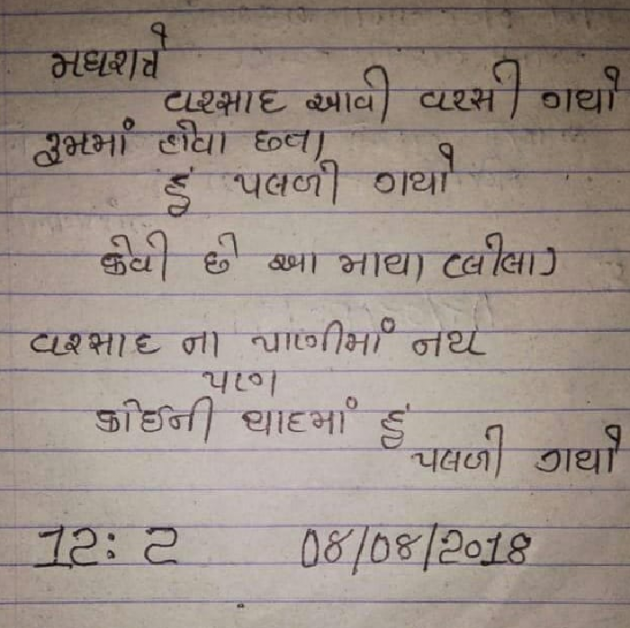 મધરાતે
વરસાદ આવી વરસી ગયો
રૂમમાં હોવા છતા
હું પલળી ગયો
કેવી છે આ માયા (લીલા)
વરસાદ ના પાણીમાં નય
પણ
કોઈની યાદમાં હું
પલળી ગયો
12: 2 08/08/2018